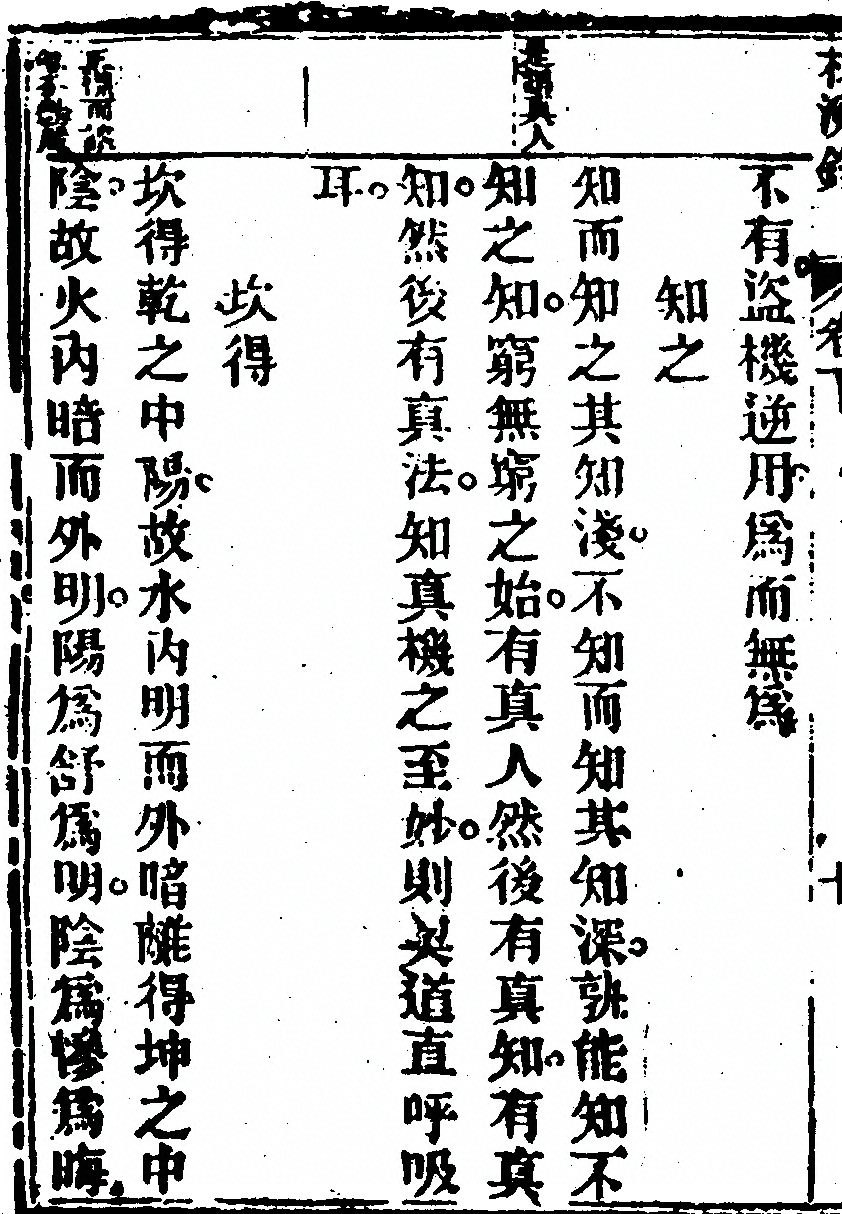 不有盜機逆用爲而無爲
知之
知而知之其知淺不知而知其知深孰能知不
知之知窮無窮之始有真人然後有真知有真
知然後有真法知真機之至妙則與道直呼吸
耳
坎得
坎得乾之中陽故水內明而外暗離得坤之中
陰故火內暗而外明陽爲舒爲明陰爲慘爲晦
是謂真人
卷下